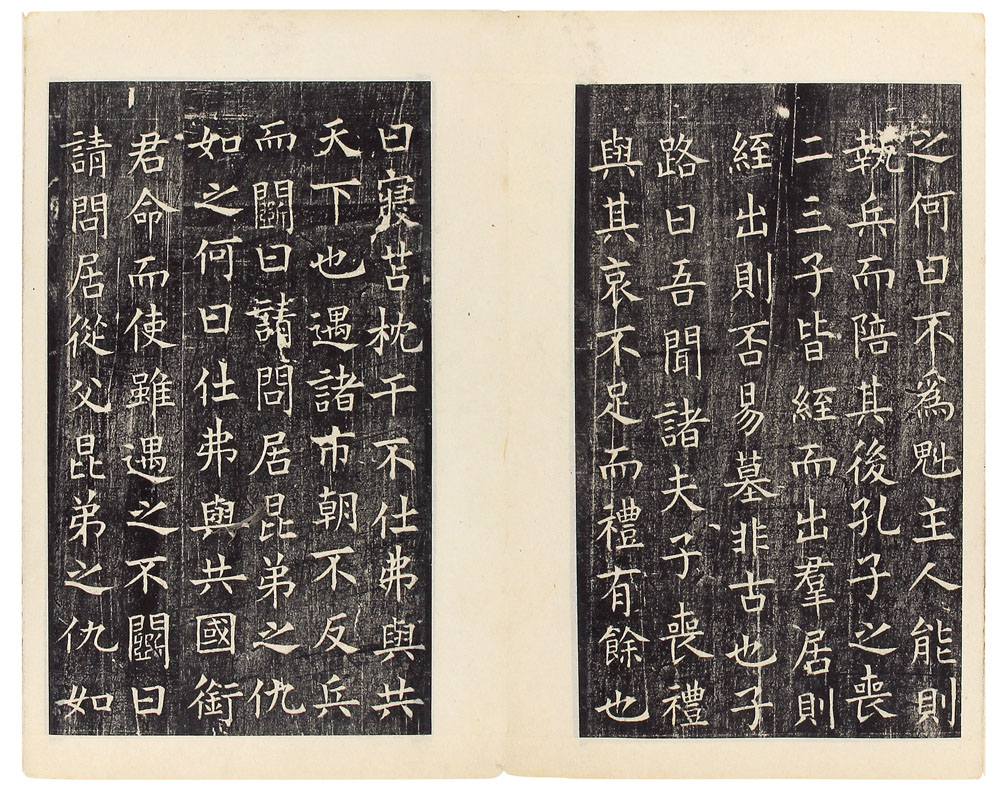 曰寢苫枕干不仕弗與共
天下也遇諸市朝不反兵
而鬭曰請問居昆弟之仇
如之何曰仕弗與共國銜
君命而使雖遇之不鬭曰
請問居從父昆弟之仇如
之何曰不爲魁主人能則
執兵而陪其後孔子之喪
二三子皆絰而出羣居則
絰出則否易墓非古也子
路曰吾聞諸夫子喪禮
與其哀不足而禮有餘也